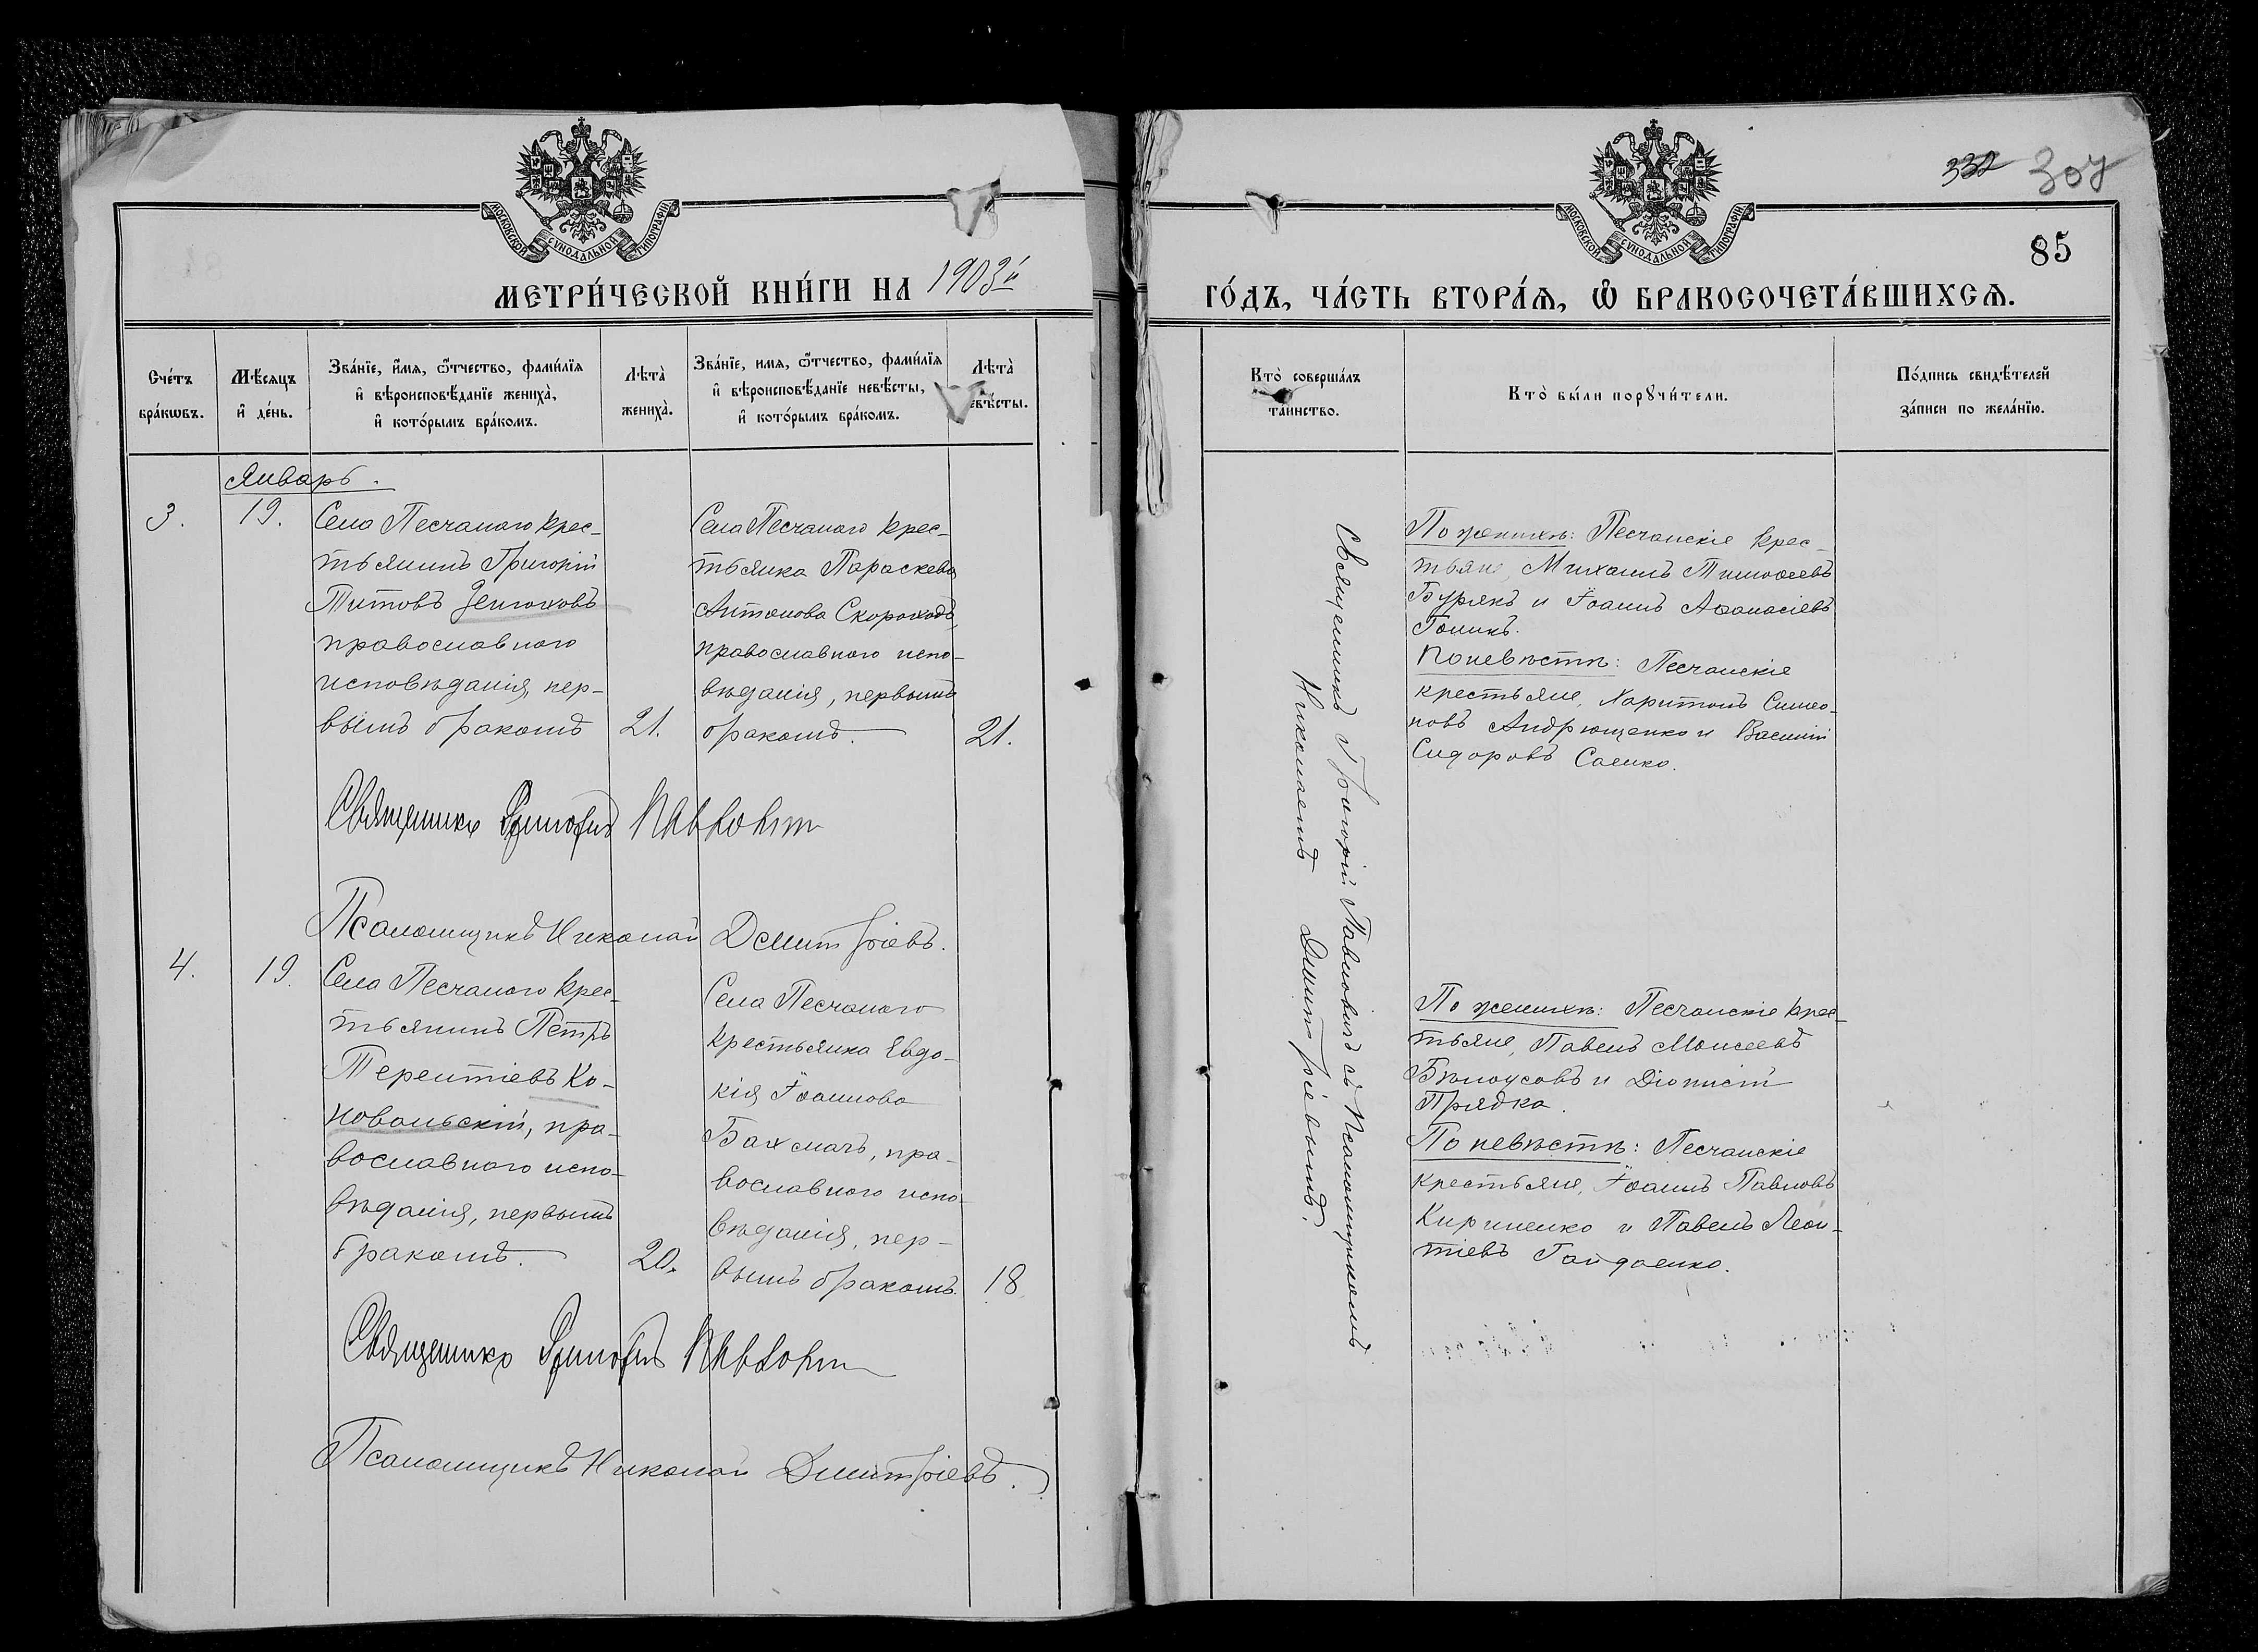 МОСКОВСКОЙ СѴНОДАЛЬНОЙ ТИПОГРАФІИ
МЕТРИ́ЧЕСКОЙ КНИ́ГИ НА 1903й
Сче́тъ бра́кѡвъ.
Мѣ́сяцъ и҆ де́нь.
Зва́нїе, и҆́мя, ѻ҆́тчество, фами́лїя
и҆ вѣроисповѣ́данїе жениха̀,
и҆ кото́рымъ бра́комъ.
Лѣта̀ жениха̀.
Зва́нїе, имя, ѻ҆́тчество, фами́лїя
и҆ вѣроисповѣ́данїе невѣ́сты,
и҆ кото́рымъ бра́комъ.
Лѣта̀
евѣ́сты.
Январь.
3.
19.
Села Песчаного крес-
тьянинъ Григорій
Титовъ
православного
исповѣданія, пер-
вымъ бракомъ
21.
Села Песчаного крес-
тьянка Параскева
Антонова Скороходъ,
православного испо-
вѣданія, первымъ
бракомъ.
21.
Священникъ Григорій Павловичъ
Псаломщикъ Николай Дмитріевъ.
4.
19.
Села Песчаного крес-
тьянинъ Петръ
Терентіевъ Ко-
новальскій, пра-
вославного испо-
вѣданія, первымъ
бракомъ.
20.
Села Песчаного
крестьянка Евдо-
кія Іоаннова
Бахмачъ, пра-
вославного испо-
вѣданія, пер-
вымъ бракомъ.
18
Священникъ Григорій Павловичъ
Псаломщикъ Николай Дмитріевъ.
МОСКОВСКОЙ СѴНОДАЛЬНОЙ ТИПОГРАФІИ
332 304
85
ГО́ДЪ, ЧА́СТЬ ВТОРА́Я, Ѡ҆ БРАКОСОЧЕТА́ВШИХСЯ.
Кто̀ соверша́лъ
таинство.
Кто̀ бы́ли порꙋчи́тели.
По́дпись свидѣ́телей
за́писи по жела́нїю.
Священникъ Григорій Павловичъ съ Псаломщикомъ
Николаемъ Дмитріевымъ.
По женихѣ: Песчанскіе крес-
тьяне, Михаилъ Тимоѳеевъ
Бурякъ и Іоаннъ Аѳанасіевъ
Гоникъ.
По невѣстѣ: Песчанскіе
крестьяне, Харитонъ Симео-
новъ Андрющенко и Василій
Сидоровъ Саенко.
По женихѣ: Песчанскіе крес-
тьяне, Павелъ Моисеевъ
Бѣлоусовъ и Діонисій
Прядка.
По невѣстѣ: Песчанскіе
крестьяне, Іоаннъ Павловъ
Кириленко и Павелъ Леон-
тіевъ Гайдаенко.